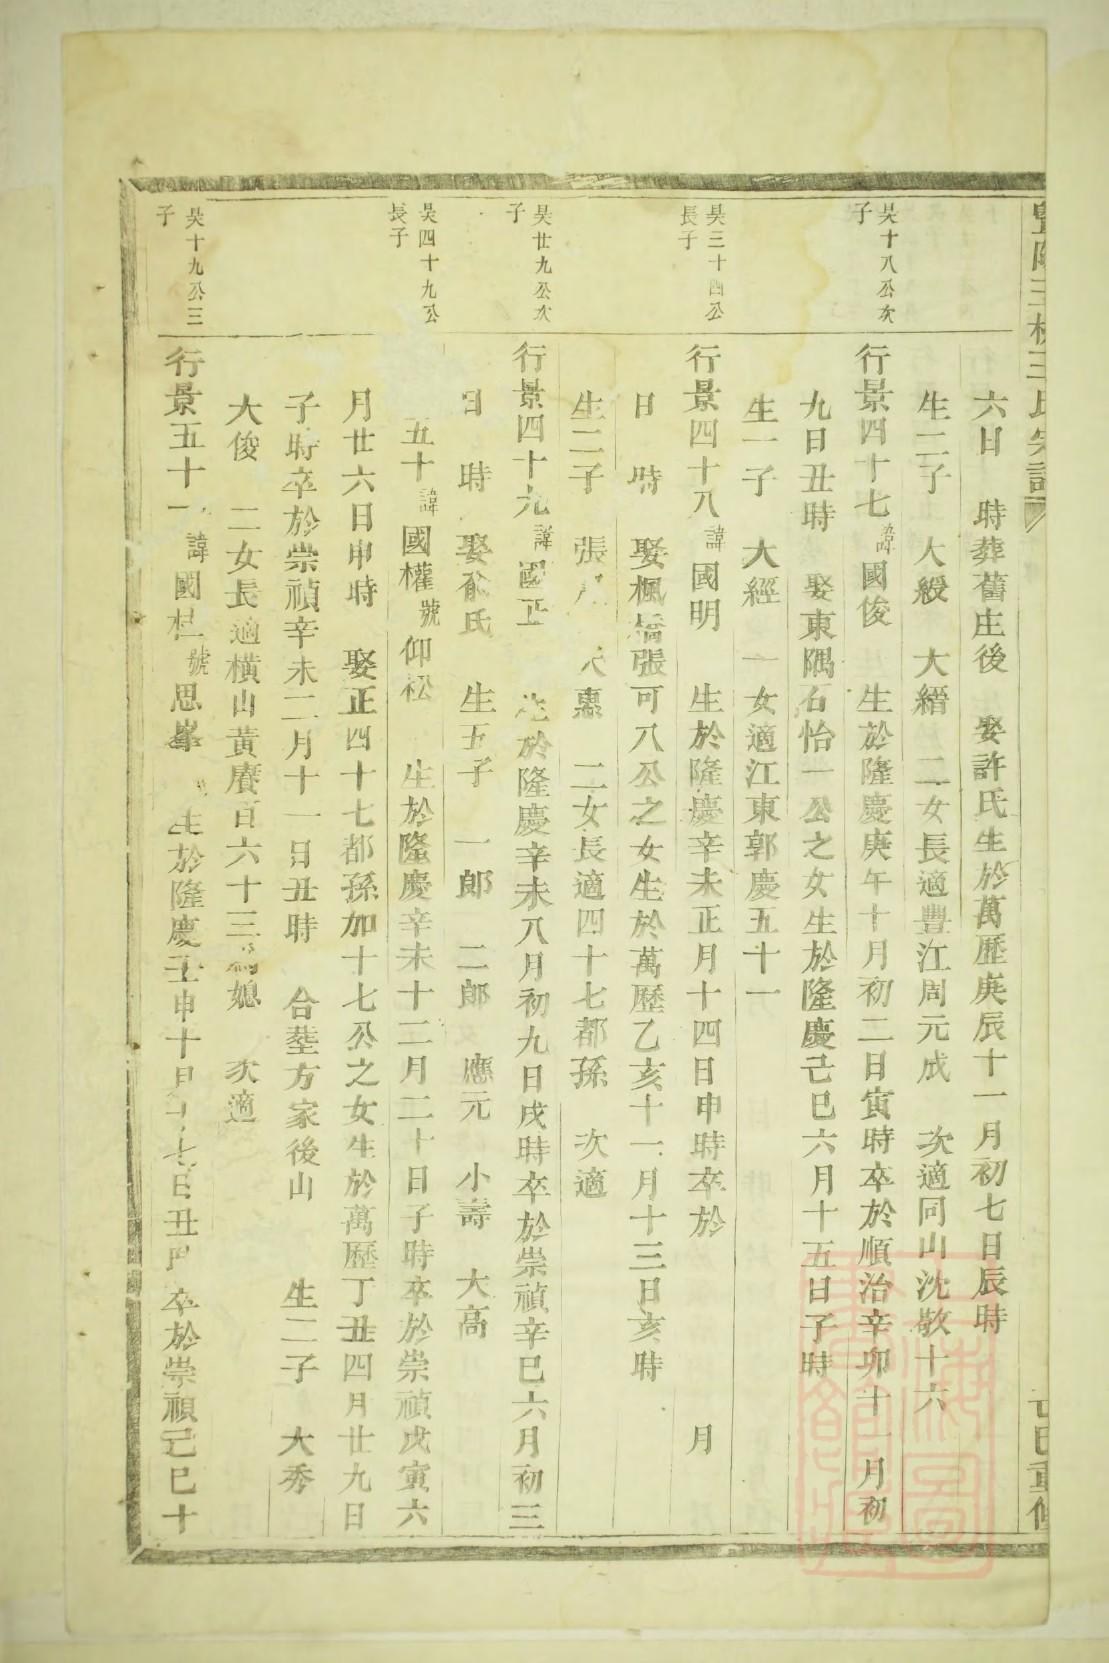 王氏宗譜
六日　時葬舊庄後　娶許氏生於萬歷庚辰十一月初七日辰時
生二子　大綬　大縉　二女長適豐江周元成　次適同山沈敬十六
昊十八公次子
行景四十七諱國俊　生於隆慶庚午十月初二日寅時卒於順治辛卯十一月初
九日丑時　娶東隅石怡一公之女生於隆慶己巳六月十五日子時
生一子　大經　一女適江東郭慶五十一
昊三十四公長子
行景四十八諱國明　生於隆慶辛未正月十四日申時卒於　月
日　時　娶楓橋張可八公之女生於萬歷乙亥十一月十三日亥時
生二子　張　惠　二女長適四十七都孫　次適
昊廿九公次子
行景四十九諱國正　生於隆慶辛未八月初九日戌時卒於崇禎辛巳六月初三
日　時　娶俞氏　生五子　一郎　二郎　應元　小壽　大高
昊四十九公長子
五十諱國權號仰松　生於隆慶辛未十二月二十日子時卒於崇禎戊寅六
月廿六日申時　娶正四十七都孫加十七公之女生於萬歷丁丑四月廿九日
子時卒於崇禎辛未二月十一日丑時　合塟方家後山　生二子　大秀
大俊　二女長適橫山黃賡百六十三為媳　次適
昊十九公三子
行景五十一諱國號思峯　生於隆慶壬申十月七日丑時卒於崇禎己巳十
重修